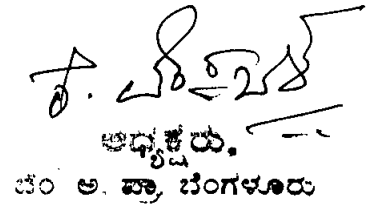 ಅಧ್ಯಕ್ಷರು.
ಬೆಂ ಅ. ಪ್ರಾ. ಬೆಂಗಳೂರು